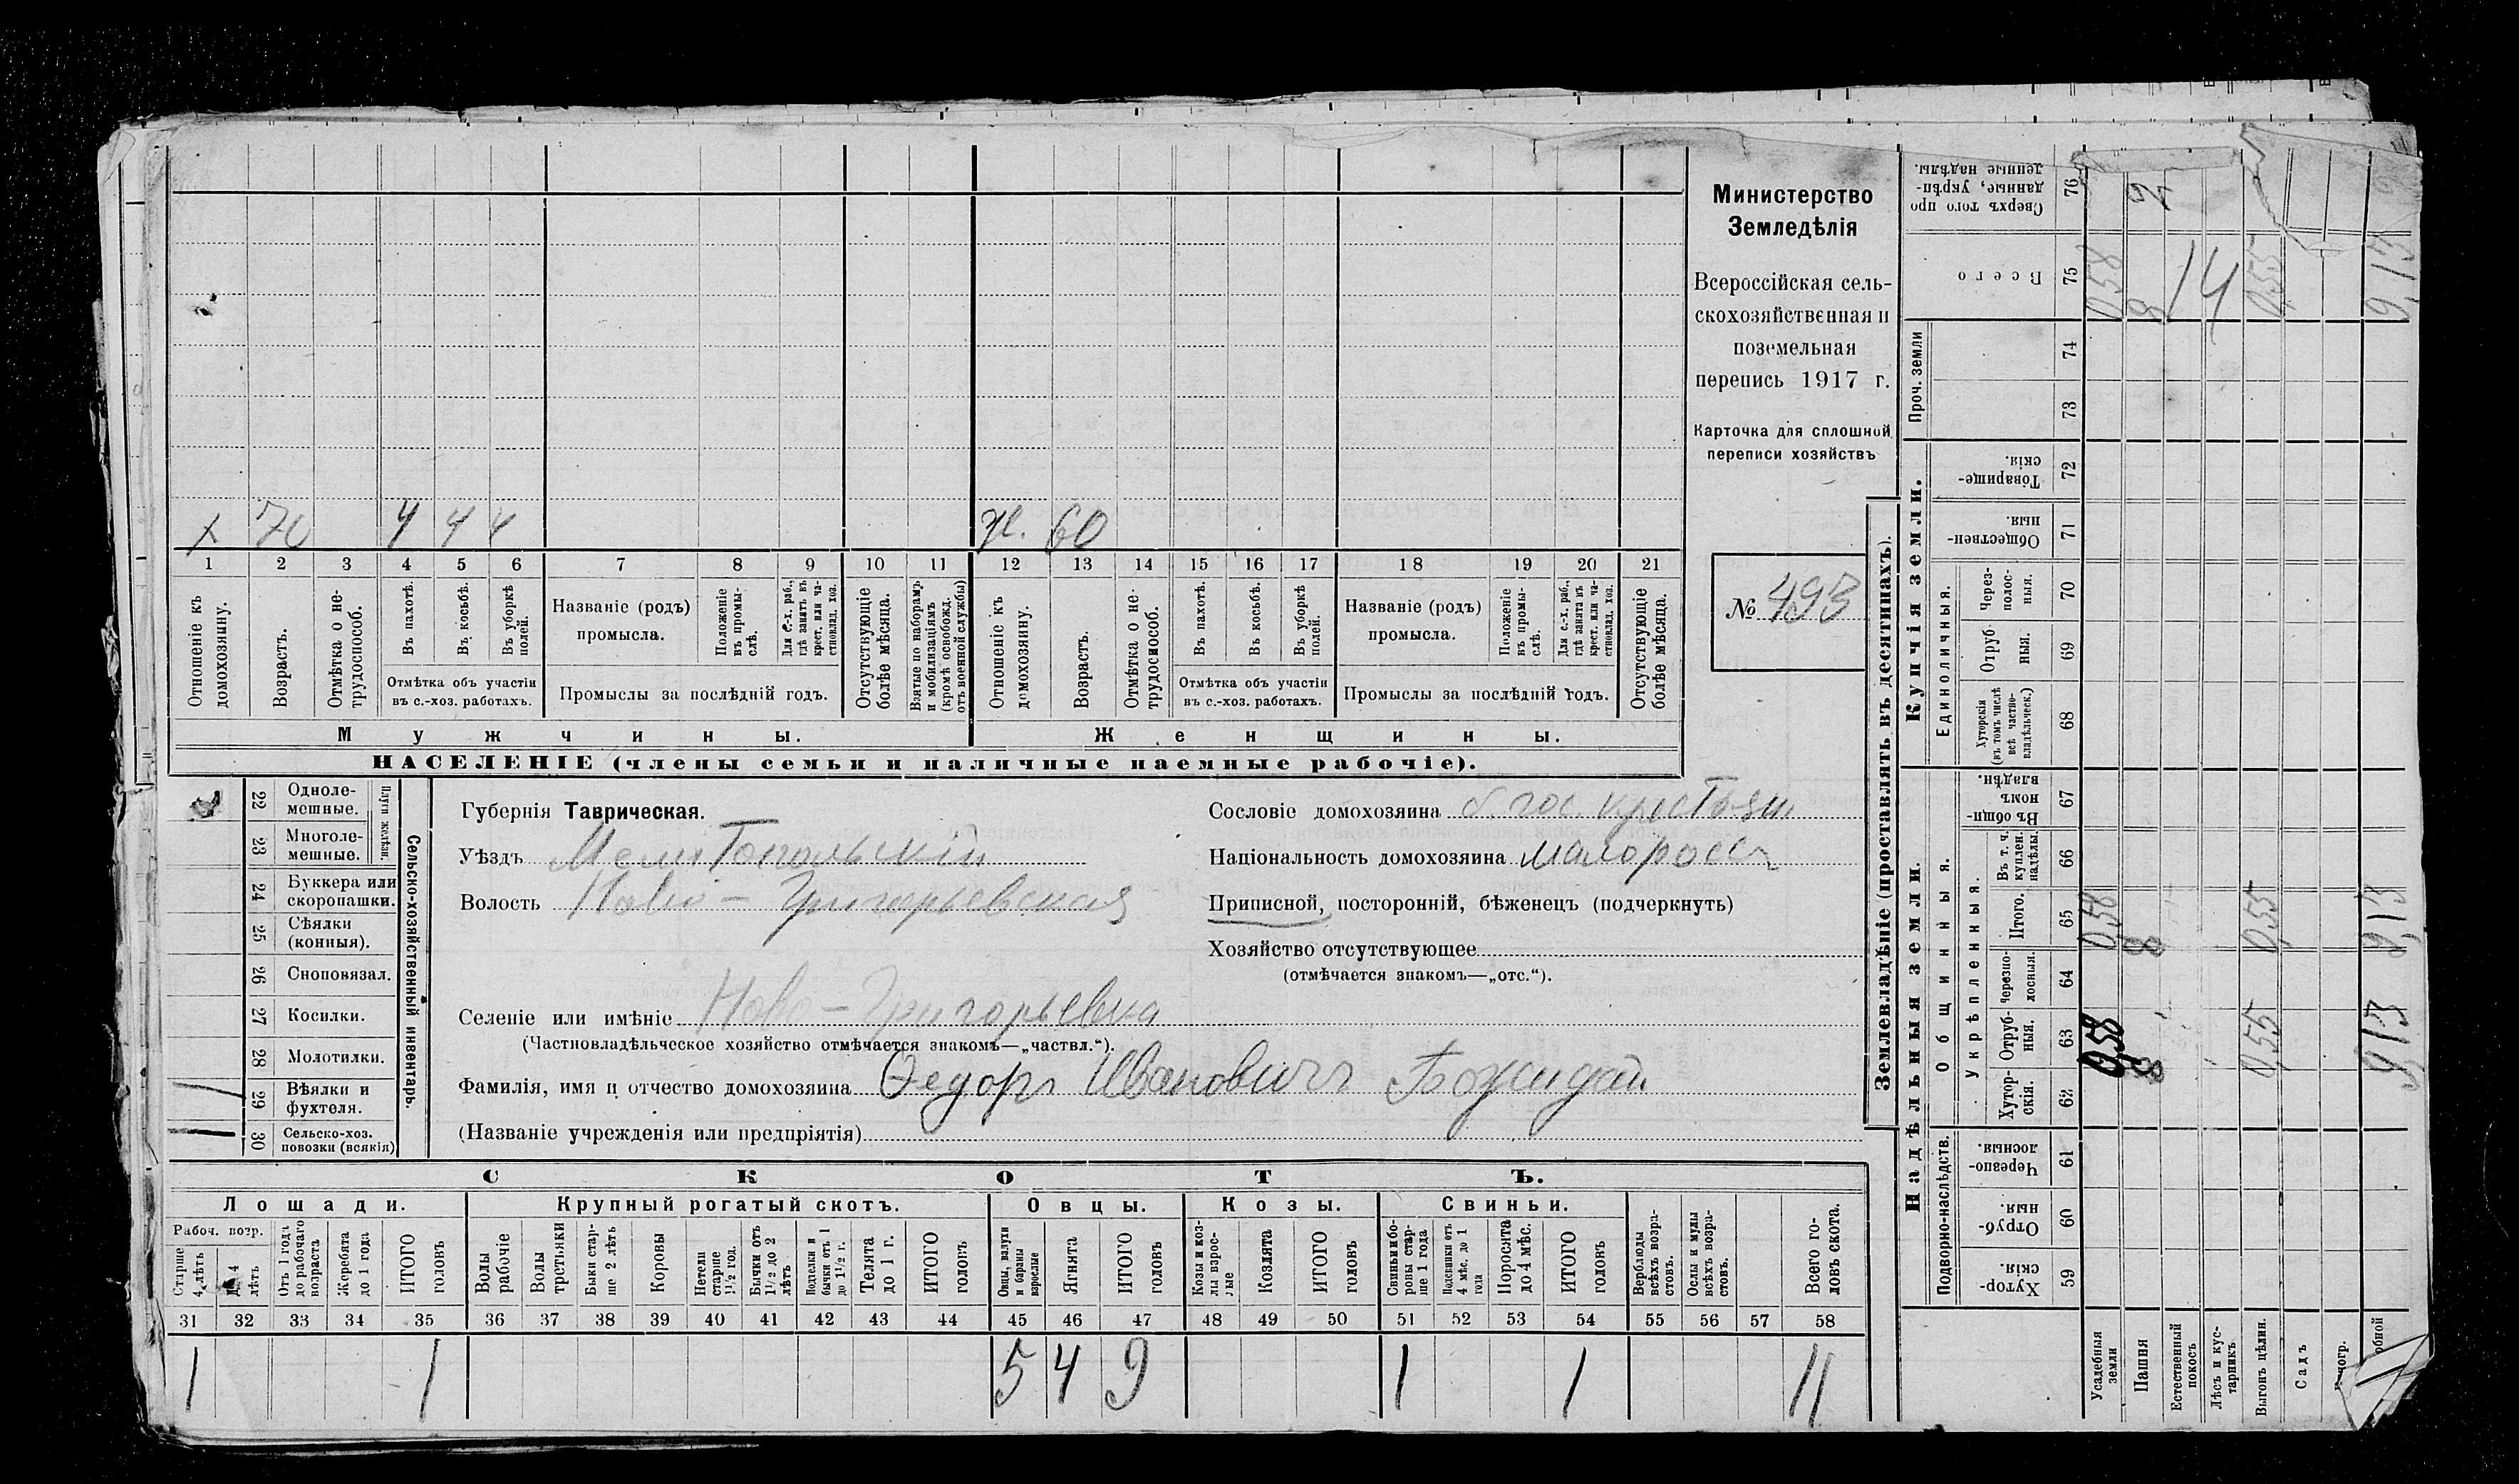 Министерство
Земледѣлія
Всероссійская сель-
скохозяйственная и
поземельная
перепись 1917 г.
Карточка для сплошной
переписи хозяйствъ
№ 493
х 70 ч ч ч
ж. 60
1 2 3 4 5 6 7 8 9 10 11 12 13 14 15 16 17 18 19 20 21
Отношеніе къ домохозяину.
Возрастъ.
Отмѣтка о не-трудоспособ.
Въ пахотѣ.
Въ косьбѣ.
Въ уборкѣ полей.
Отмѣтка объ участіи
въ с.-хоз. работахъ.
Названіе (родъ)
промысла.
Положеніе въ промы-слѣ.
Для с.-х. раб., гдѣ занятъ въ крест. или ча-стновлад. хоз.
Промыслы за послѣдній годъ.
Отсутствующіе болѣе мѣсяца.
Взятые по наборамъ и мобилизаціямъ (кромѣ освобожд. отъ военной службы)
Отношеніе къ домохозяину.
Возрастъ.
Отмѣтка о не-трудоспособ.
Въ пахотѣ.
Въ косьбѣ.
Въ уборкѣ полей.
Отмѣтка объ участіи
въ с.-хоз. работахъ.
Названіе (родъ)
промысла.
Положеніе въ промы-слѣ.
Для с.-х. раб., гдѣ занята въ крест. или ча-стновлад. хоз.
Промыслы за послѣдній годъ.
Отсутствующіе болѣе мѣсяца.
Мужчины.
Женщины.
НАСЕЛЕНІЕ (члены семьи и наличные наемные рабочіе).
Сельско-хозяйственный инвентарь.
Плуги желѣзн.
22 Одноле-
мешные.
23 Многоле-
мешные.
24 Буккера или
скоропашки.
25 Сѣялки
(конныя).
26 Сноповязал.
27 Косилки.
28 Молотилки.
1 29 Вѣялки и
фухтеля.
1 30 Сельско-хоз.
повозки (всякія)
Губернія Таврическая.
Уѣздъ Мелитопольскій
Волость Ново-Григорьевская
Сословіе домохозяина б. гос. крестьян.
Національность домохозяина малороссъ
Приписной, посторонній, бѣженецъ (подчеркнуть)
Хозяйство отсутствующее
(отмѣчается знакомъ—„отс.“).
Селеніе или имѣніе Ново-Григорьевка
(Частновладѣльческое хозяйство отмѣчается знакомъ—„частвл.“).
Фамилія, имя и отчество домохозяина Ѳедоръ Ивановичъ Божидай
(Названіе учрежденія или предпріятія)
СКОТЪ.
Лошади.
Крупный рогатый скотъ.
Овцы.
Козы.
Свиньи.
Рабоч. возр.
Старше 4 лѣтъ
До 4 лѣтъ
Отъ 1 года до рабочаго возраста
Жеребята до 1 года
ИТОГО головъ
Волы рабочіе
Волы третьяки
Быки стар-ше 2 лѣтъ
Коровы
Нетели старше 1½ год.
Бычки отъ 1½ до 2 лѣтъ
Подтелки и бычки отъ 1 до 1½ г.
Телята до 1 г.
ИТОГО головъ
Овцы, валухи и бараны взрослые
Ягнята
ИТОГО головъ
Козы и коз-лы взрос-лые
Козлята
ИТОГО головъ
Свиньи и бо-ровы стар-ше 1 года
Подсвинки отъ 4 мѣс. до 1 года
Поросята до 4 мѣс.
ИТОГО головъ
Верблюды всѣхъ возра-стовъ.
Ослы и мулы всѣхъ возра-стовъ.
Всего го-ловъ скота.
31 32 33 34 35 36 37 38 39 40 41 42 43 44 45 46 47 48 49 50 51 52 53 54 55 56 57 58
1 1 5 4 9 1 1 11
Землевладѣніе (проставлять въ десятинахъ).
Надѣльныя земли.
Купчія земли.
Проч. земли
Подворно-наслѣдств.
Общинныя.
Укрѣпленныя.
Единоличныя.
Сверхъ того про
данные, укрѣп-
ленные надѣлы.
76
Всего 75 0,58 8 14 0,55 9,13
74
73
Товарище-
скія. 72
Обществен-
ныя. 71
Через-
полос-
ныя. 70
Отруб
ныя. 69
Хуторскія
(въ томъ числѣ
всѣ частно-
владѣльческ.) 68
Въ общин-
номъ
владѣн. 67
Въ т. ч.
куплен.
надѣлы. 66
Итого. 65 0,58 8 0,55 9,13
Черезпо-
лосныя. 64
Отруб-
ныя. 63 0,58 8 0,55 9,13
Хутор-
скія. 62
Черезпо-
лосныя. 61
Отруб-
ныя. 60
Хутор-
скія. 59
Усадебныя
земли
Пашня
Естественный
покосъ
Лѣсъ и кус-
тарникъ
Выгонъ цѣлин.
Садъ